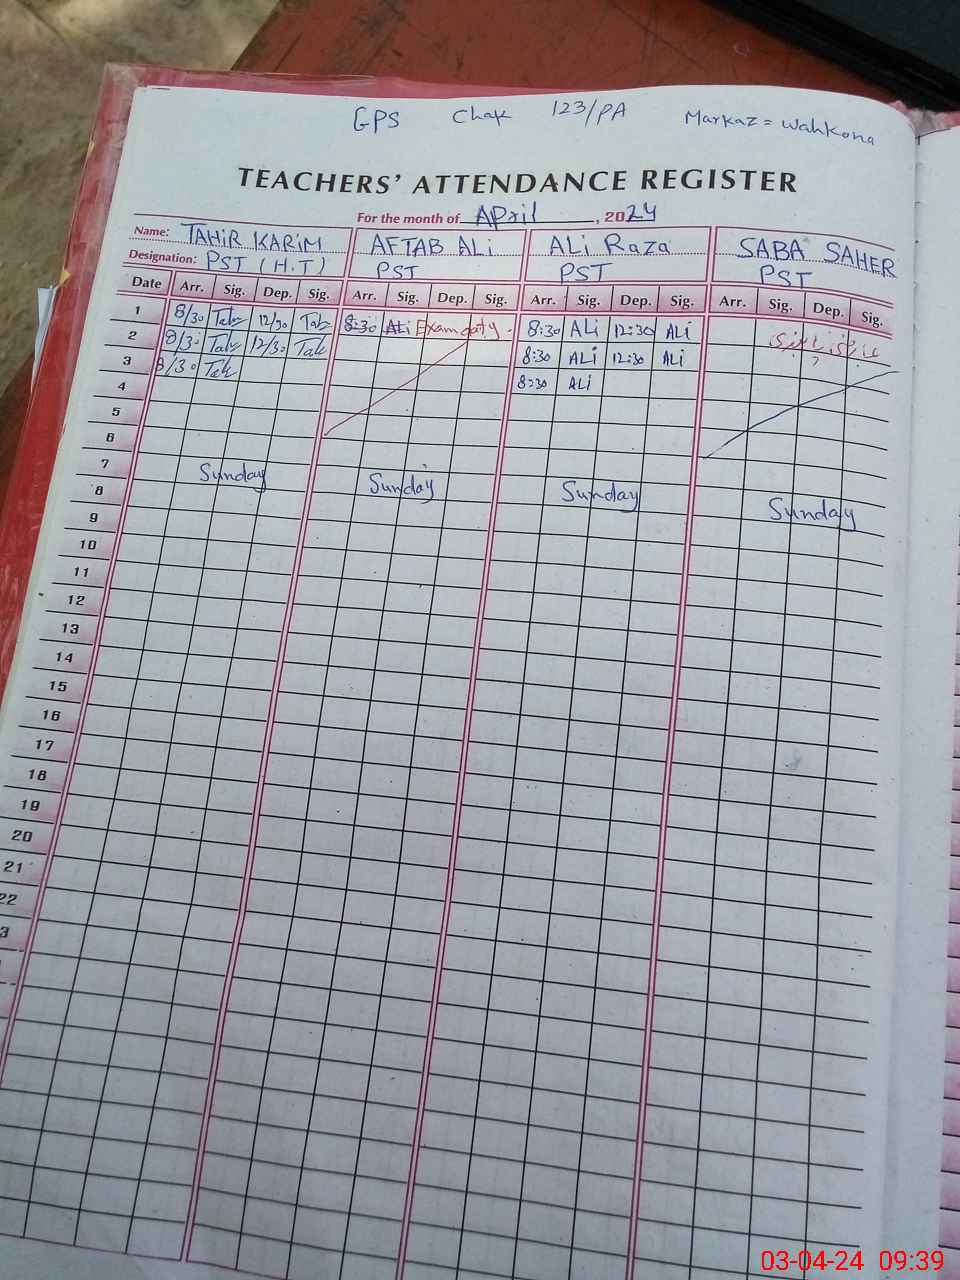 GPS Chak 123/PA Markaz = Wahkona
TEACHERS' ATTENDANCE REGISTER
For the month of April, 2024
Name: TAHIR KARIM AFTAB ALi ALi Raza SABA SAHER
Designation: PST (H.T) PST PST PST
Date Arr. Sig. Dep. Sig. Arr. Sig. Dep. Sig. Arr. Sig. Dep. Sig. Arr. Sig. Dep. Sig.
1 8/30 12/30 8:30 ALi Exam duty 8:30 ALi 12:30 ALi
2 8/30 12/30 8:30 ALi 12:30 ALi
3 8/30 8:30 ALi
4
5
6
7 Sunday Sunday Sunday Sunday
8
9
10
11
12
13
14
15
16
17
18
19
20
21
22
3
03-04-24 09:39